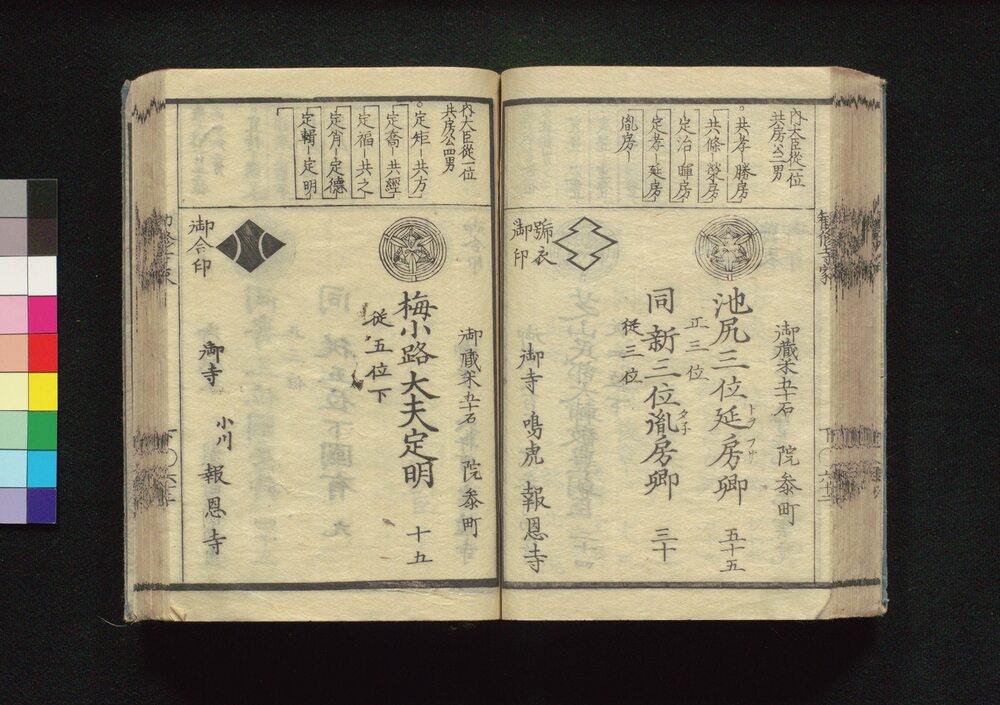 内大臣従一位
共房公二男
共孝 勝房
共條 榮房
定治 暉房
定孝 延房
胤房
御藏米五十石 院参町
池尻三位延房卿 五十五
正三位
同新三位胤房卿 三十
タネ
従三位
號衣
御印
御寺 鳴虎 報恩寺
内大臣従一位
共房公四男
定矩 共方
定喬 共經
定福 共之
定肖 定德
定輯 定明
御藏米五十石 院参町
梅小路大夫定明 十五
従五位下
御合印
御寺 小川 報恩寺